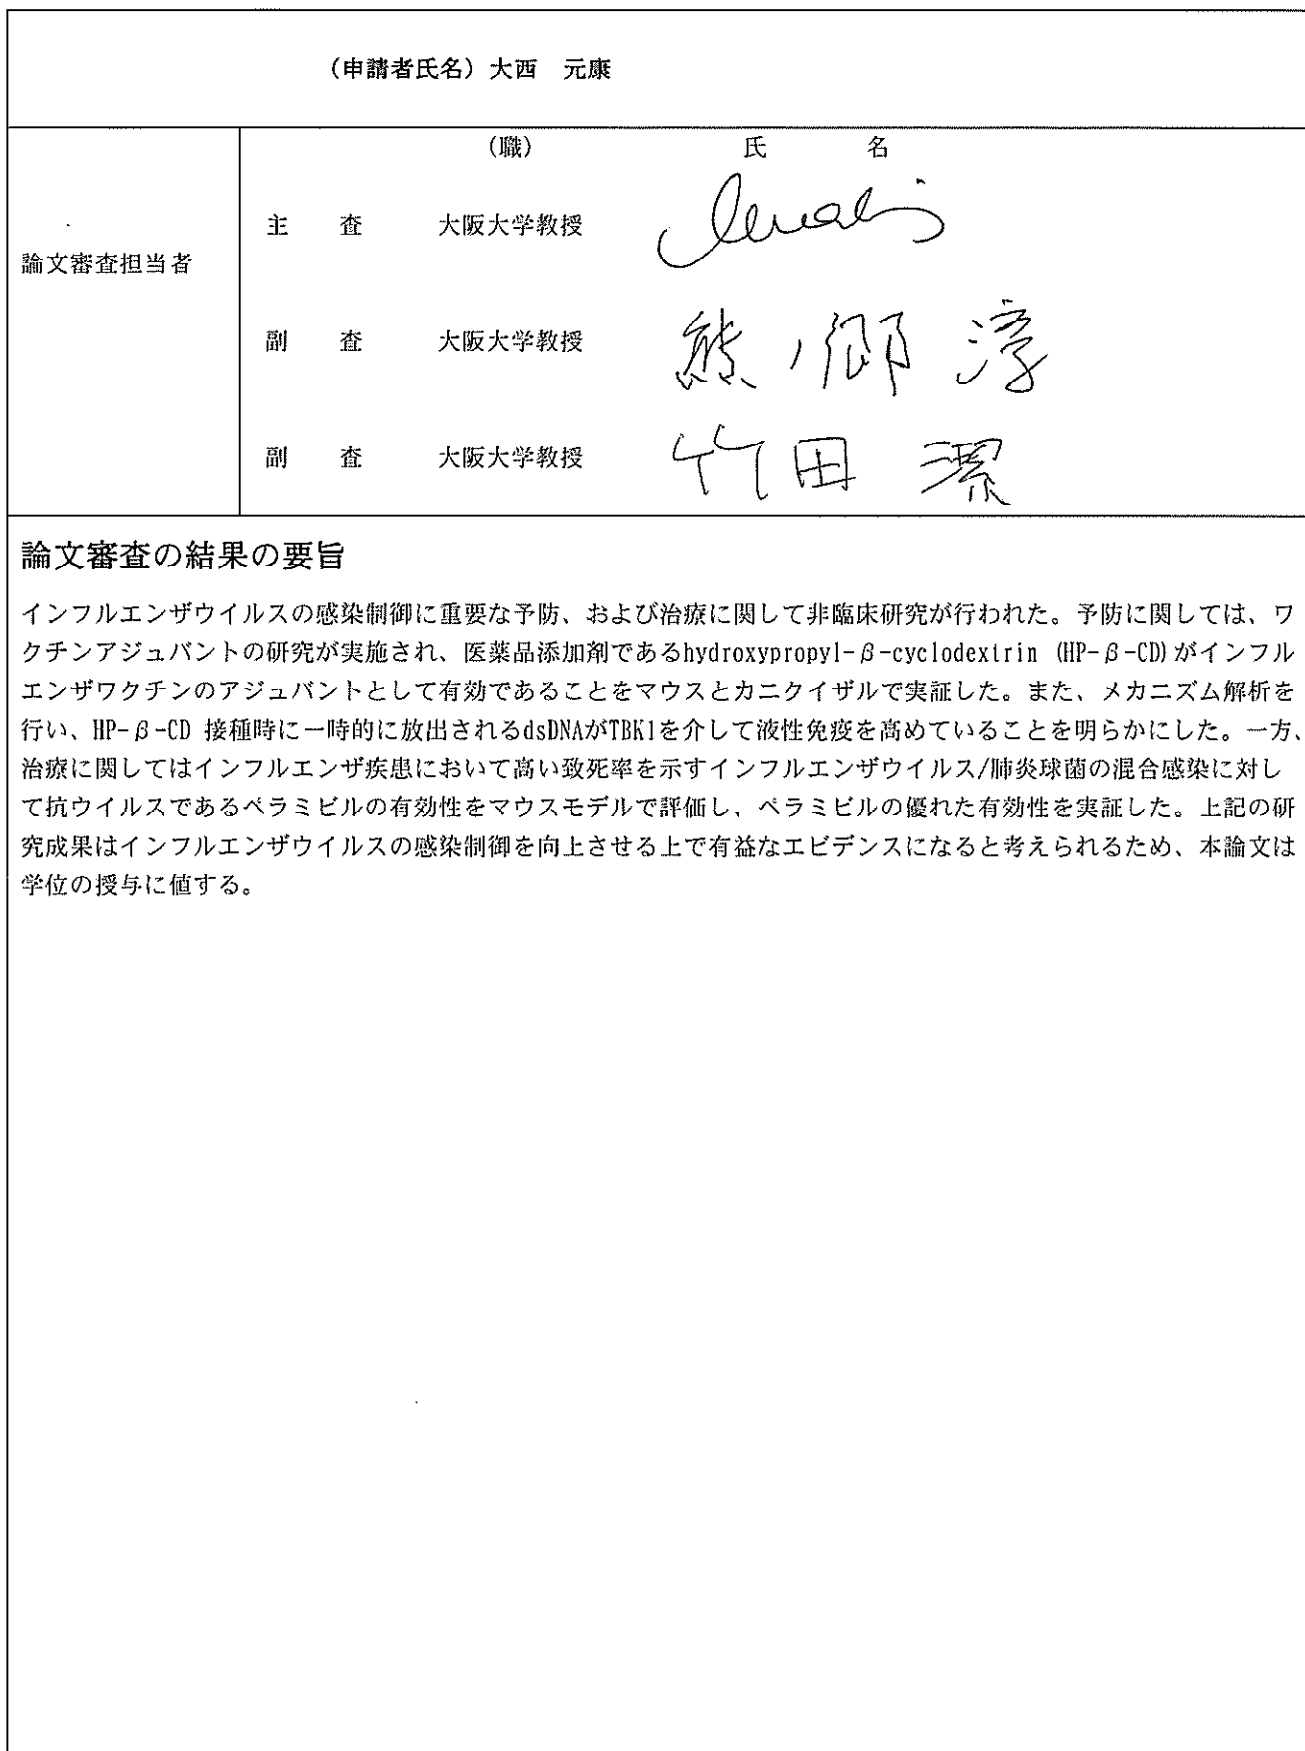 (申請者氏名) 大西　元康
(職)　氏　名
論文審査担当者
主　査　大阪大学教授
副　査　大阪大学教授　熊ノ郷 淳
副　査　大阪大学教授　竹田 潔
論文審査の結果の要旨
インフルエンザウイルスの感染制御に重要な予防、および治療に関して非臨床研究が行われた。予防に関しては、ワ
クチンアジュバントの研究が実施され、医薬品添加剤であるhydroxypropyl-β-cyclodextrin (HP-β-CD)がインフル
エンザワクチンのアジュバントとして有効であることをマウスとカニクイザルで実証した。また、メカニズム解析を
行い、HP-β-CD 接種時に一時的に放出されるdsDNAがTBK1を介して液性免疫を高めていることを明らかにした。一方、
治療に関してはインフルエンザ疾患において高い致死率を示すインフルエンザウイルス/肺炎球菌の混合感染に対し
て抗ウイルスであるペラミビルの有効性をマウスモデルで評価し、ペラミビルの優れた有効性を実証した。上記の研
究成果はインフルエンザウイルスの感染制御を向上させる上で有益なエビデンスになると考えられるため、本論文は
学位の授与に値する。